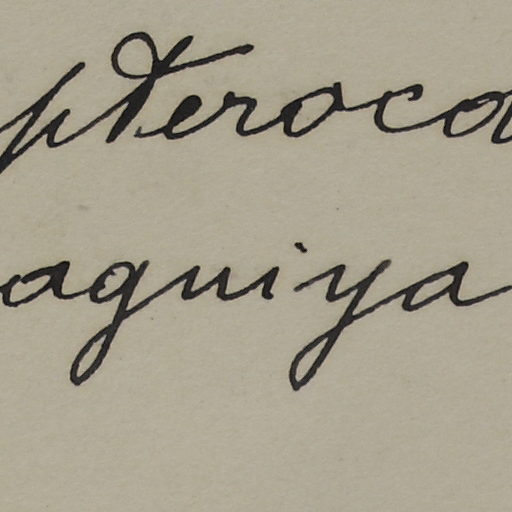 pteroca
aguiya